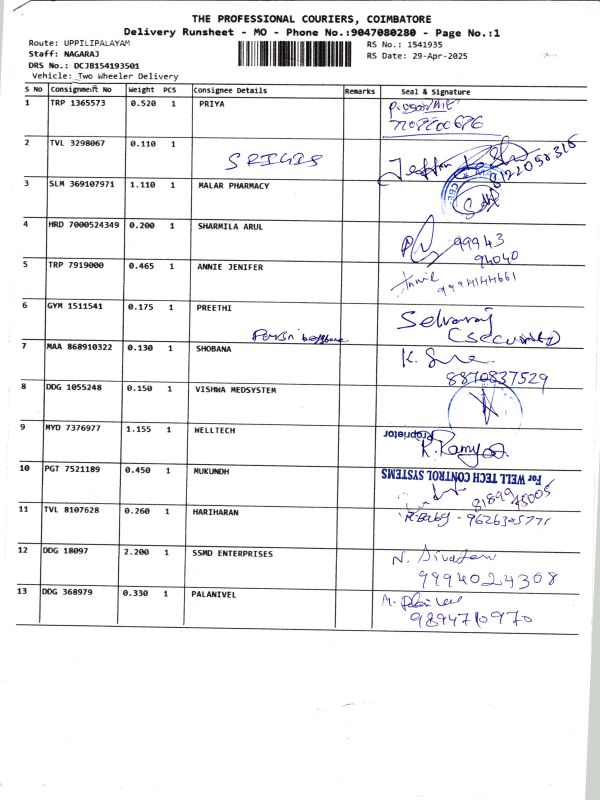 THE PROFESSIONAL COURIERS, COIMBATORE
Delivery Runsheet - MO - Phone No.:9047080280 - Page No.:1
Route: UPPILIPALAYAM RS No.: 1541935
Staff: NAGARAJ RS Date: 29-Apr-2025
DRS No.: DCJB154193501
Vehicle: Two Wheeler Delivery
S No Consignment No Weight PCS Consignee Details Remarks Seal & Signature
1 TRP 1365573 0.520 1 PRIYA
2 TVL 3298067 0.110 1
8122058316
3 SLM 369107971 1.110 1 MALAR PHARMACY
4 HRD 7000524349 0.200 1 SHARMILA ARUL
99943
94040
5 TRP 7919000 0.465 1 ANNIE JENIFER
9994144661
6 GYM 1511541 0.175 1 PREETHI
Selvaraj
(Security)
7 MAA 868910322 0.130 1 SHOBANA
8870837529
8 DDG 1055248 0.150 1 VISHWA MEDSYSTEM
9 MYD 7376977 1.155 1 WELLTECH
Proprietor
10 PGT 7521189 0.450 1 MUKUNDH
For WELL TECH CONTROL SYSTEMS
8189945005
11 TVL 8107628 0.260 1 HARIHARAN
12 DDG 18097 2.200 1 SSMD ENTERPRISES
9994024308
13 DDG 368979 0.330 1 PALANIVEL
9894710970